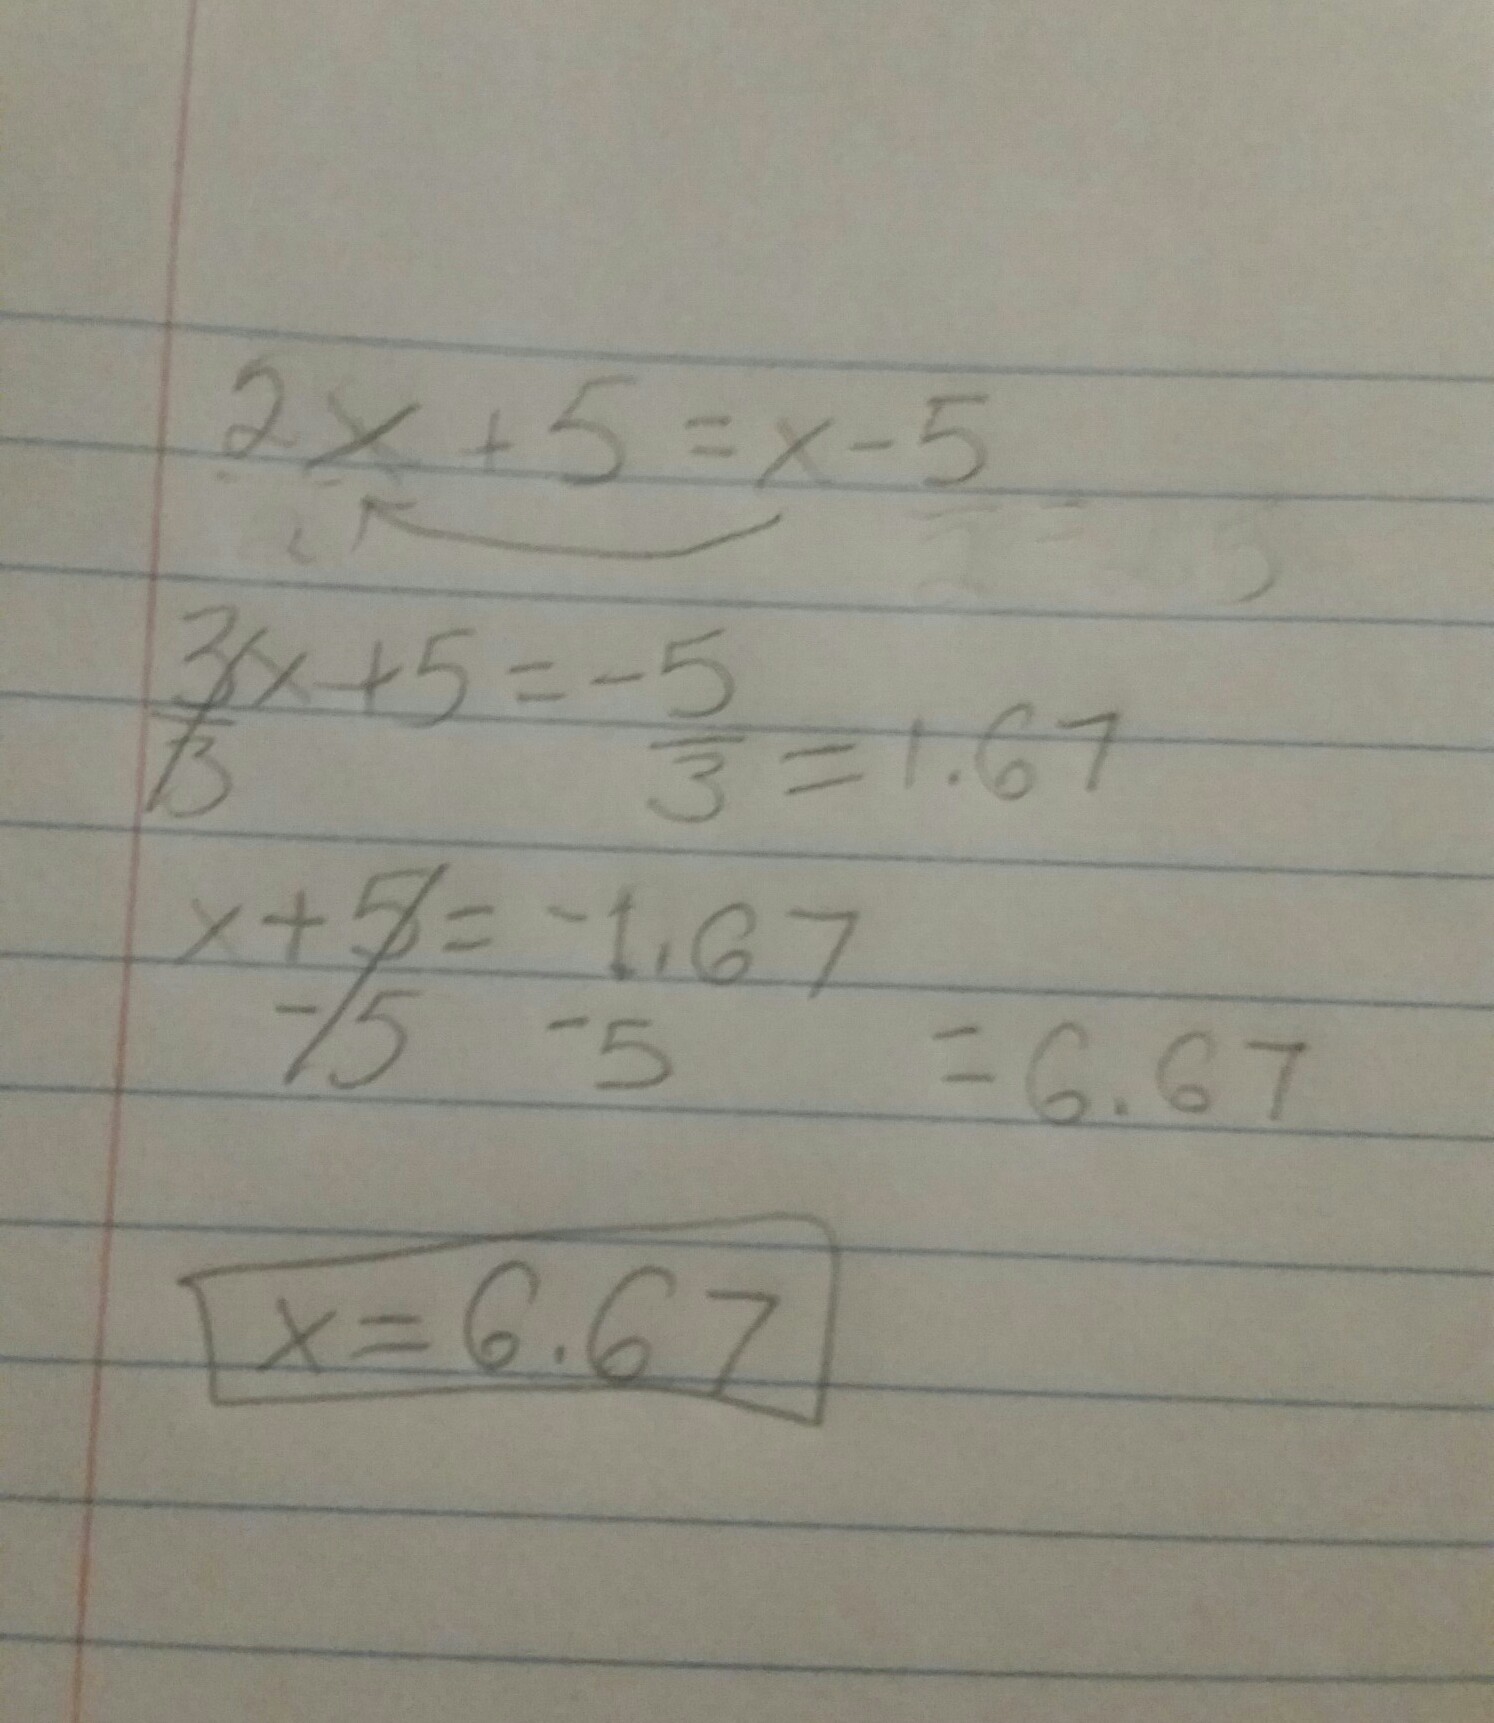 2x + 5 = x - 5
3x + 5 = -5
3 3 = 1.67
x + 5 = -1.67
-5 -5 = 6.67
x = 6.67